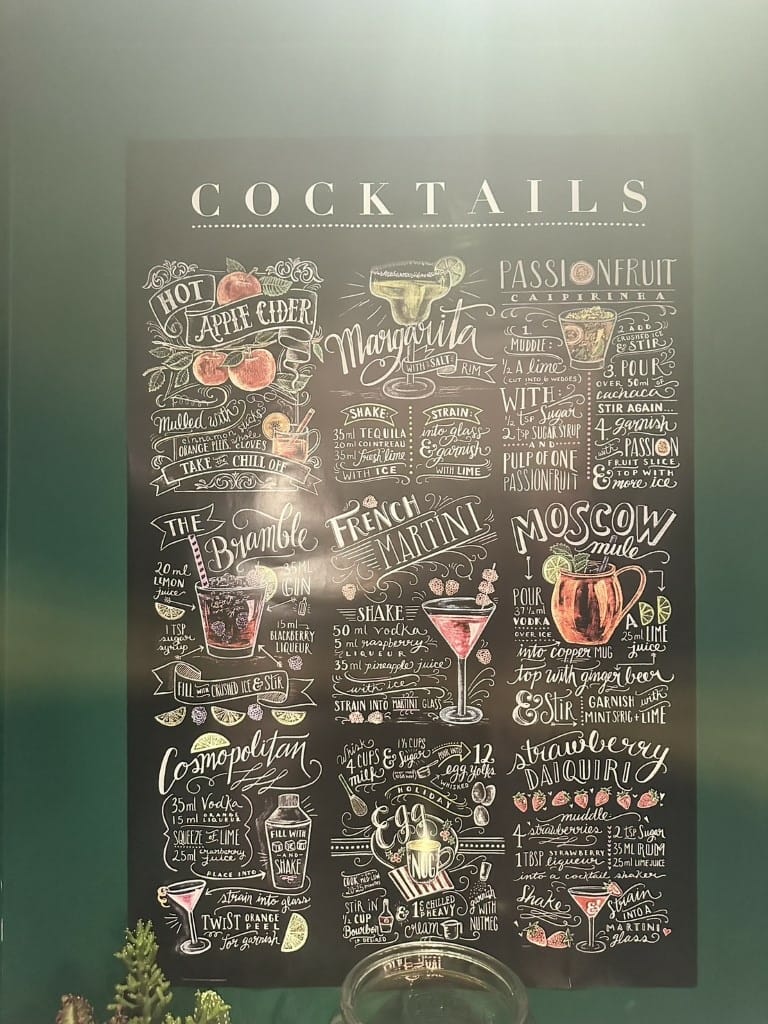 COCKTAILS
HOT
APPLE CIDER
Mulled with
cinnamon sticks
ORANGE PEEL whole CLOVES
TAKE THE CHILL OFF
Margarita
WITH SALT RIM
SHAKE:
35ml TEQUILA
20ml COINTREAU
35ml fresh lime
WITH ICE
STRAIN:
into glass
& garnish
WITH LIME
PASSIONFRUIT
CAIPIRINHA
1.
MUDDLE:
1/2 A lime
(CUT INTO 6 WEDGES)
WITH
1/2 tsp Sugar
2 tsp SUGAR SYRUP
AND
PULP OF ONE
PASSIONFRUIT
2. ADD
CRUSHED ICE
& STIR
3. POUR
OVER 50ml of
cachaca
STIR AGAIN...
4. garnish
with PASSION
FRUIT SLICE
& TOP WITH
more ice
THE
Bramble
20 ml
LEMON
juice
1 TSP
sugar
syrup
35ML
GIN
15 ml
BLACKBERRY
LIQUEUR
FILL WITH CRUSHED ICE & STIR
FRENCH
MARTINI
SHAKE
50 ml vodka
5 ml raspberry
LIQUEUR
35ml pineapple juice
with ice
STRAIN INTO MARTINI GLASS
MOSCOW
mule
POUR
37 1/2 ml
VODKA
OVER ICE
ADD
25ml LIME
juice
into copper MUG
top with ginger beer
& Stir
GARNISH with
MINT SPRIG + LIME
Cosmopolitan
35ml Vodka
15 ml ORANGE
LIQUEUR
SQUEEZE OF LIME
25ml cranberry
juice
PLACE INTO
FILL WITH
ICE
AND
SHAKE
strain into glass
TWIST ORANGE
PEEL
for garnish
Whisk
4 CUPS
milk
&
1 1/2 CUPS
Sugar
POUR INTO
12
egg yolks
WHISKED
HOLIDAY
Egg
NOG
COOK MED LOW
20-25 minutes
STIR IN
1/2 CUP
Bourbon
IF DESIRED
&
CHILLED
HEAVY
cream
garnish
WITH
NUTMEG
strawberry
DAIQUIRI
muddle
4 strawberries
1 TBSP STRAWBERRY
liqueur
2 tsp Sugar
35 ML RUM
25ml LIME JUICE
into a cocktail shaker
Shake
&
Strain
INTO A
MARTINI
glass